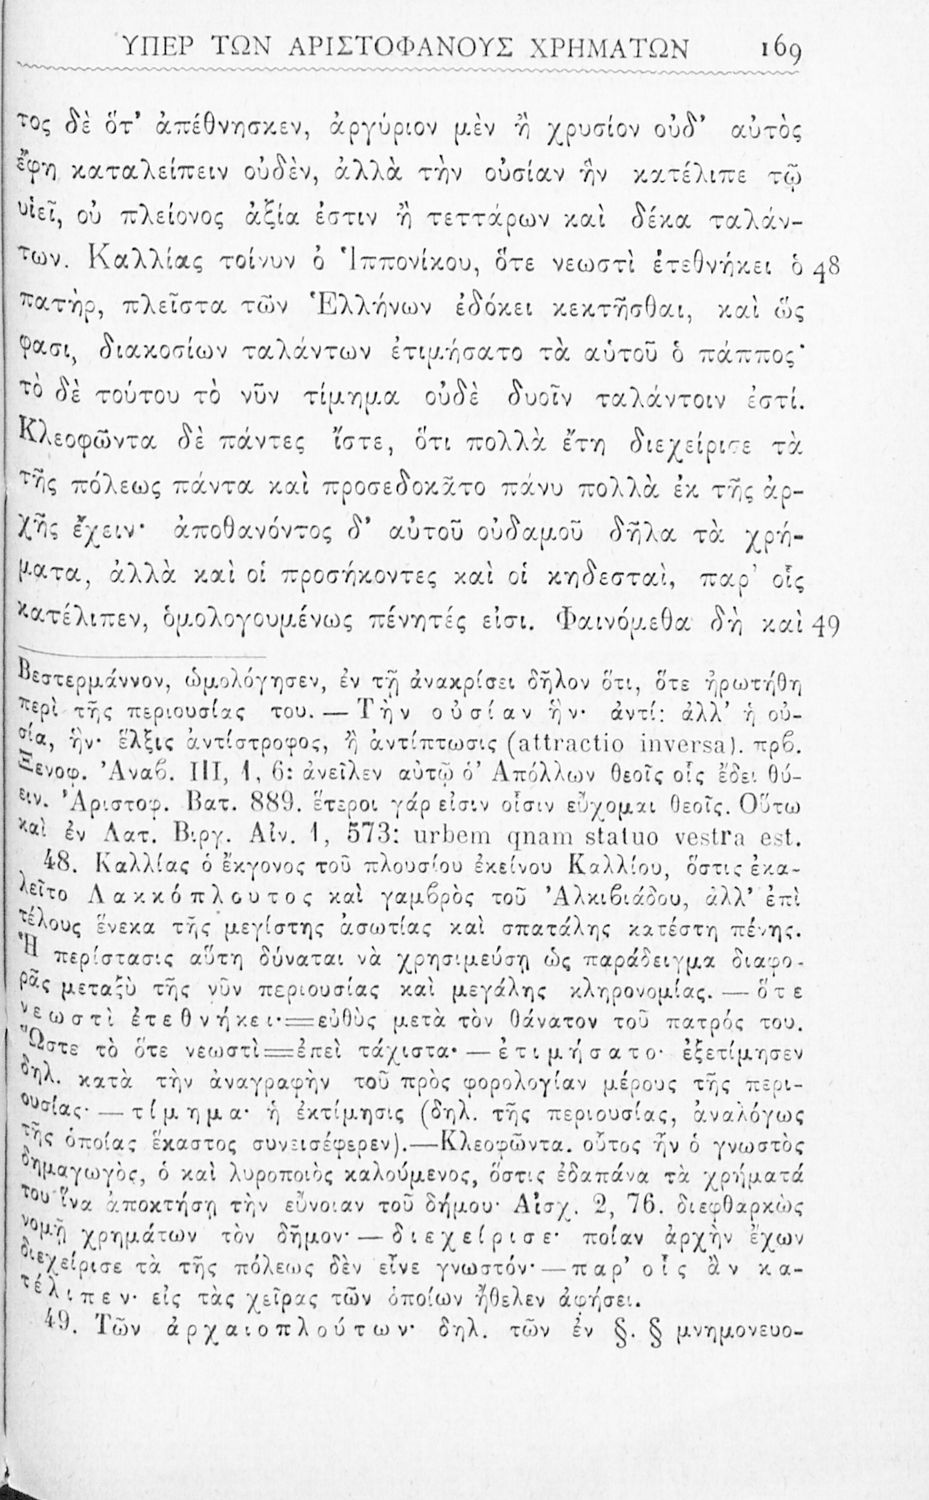 ΥΠΕΡ ΤΩΝ ΑΡΙΣΤΟΦΑΝΟΥΣ ΧΡΗΜΑΤΩΝ 169
τος δὲ ὅτ' ἀπέθνησκεν, ἀργύριον μὲν ἢ χρυσίον οὐδ' αὐτὸς
ἔφη καταλείπειν οὐδὲν, ἀλλὰ τὴν οὐσίαν ἣν κατέλιπε τῷ
υἱεῖ, οὐ πλείονος ἀξία ἐστιν ἢ τεττάρων καὶ δέκα ταλάν-
των. Καλλίας τοίνυν ὁ Ἱππονίκου, ὅτε νεωστὶ ἐτεθνήκει ὁ 48
πατὴρ, πλεῖστα τῶν Ἑλλήνων ἐδόκει κεκτῆσθαι, καὶ ὥς
φασι, διακοσίων ταλάντων ἐτιμήσατο τὰ αὑτοῦ ὁ πάππος·
τὸ δὲ τούτου τὸ νῦν τίμημα οὐδὲ δυοῖν ταλάντοιν ἐστί.
Κλεοφῶντα δὲ πάντες ἴστε, ὅτι πολλὰ ἔτη διεχείρισε τὰ
τῆς πόλεως πάντα καὶ προσεδοκᾶτο πάνυ πολλὰ ἐκ τῆς ἀρ-
χῆς ἔχειν· ἀποθανόντος δ' αὐτοῦ οὐδαμοῦ δῆλα τὰ χρή-
ματα, ἀλλὰ καὶ οἱ προσήκοντες καὶ οἱ κηδεσταὶ, παρ' οἷς
κατέλιπεν, ὁμολογουμένως πένητές εἰσι. Φαινόμεθα δὴ καὶ 49
Βεστερμάννον, ὡμολόγησεν, ἐν τῇ ἀνακρίσει δῆλον ὅτι, ὅτε ἠρωτήθη
περὶ τῆς περιουσίας του. — Τὴν οὐσίαν ἣν· ἀντί: ἀλλ' ἡ οὐ-
σία, ἣν· ἕλξις ἀντίστροφος, ἢ ἀντίπτωσις (attractio inversa). πρβ.
Ξενοφ. Ἀναβ. III, 1, 6: ἀνεῖλεν αὐτῷ ὁ Ἀπόλλων θεοῖς οἷς ἔδει θύ-
ειν. Ἀριστοφ. Βατ. 889. ἕτεροι γάρ εἰσιν οἷσιν εὔχομαι θεοῖς. Οὕτω
καὶ ἐν Λατ. Βιργ. Αἰν. 1, 573: urbem qnam statuo vestra est.
48. Καλλίας ὁ ἔκγονος τοῦ πλουσίου ἐκείνου Καλλίου, ὅστις ἐκα-
λεῖτο Λακκόπλουτος καὶ γαμβρὸς τοῦ Ἀλκιβιάδου, ἀλλ' ἐπὶ
τέλους ἕνεκα τῆς μεγίστης ἀσωτίας καὶ σπατάλης κατέστη πένης.
Ἡ περίστασις αὕτη δύναται νὰ χρησιμεύσῃ ὡς παράδειγμα διαφο-
ρᾶς μεταξὺ τῆς νῦν περιουσίας καὶ μεγάλης κληρονομίας. — ὅτε
νεωστὶ ἐτεθνήκει·=εὐθὺς μετὰ τὸν θάνατον τοῦ πατρός του.
Ὥστε τὸ ὅτε νεωστὶ=ἐπεὶ τάχιστα· — ἐτιμήσατο· ἐξετίμησεν
δηλ. κατὰ τὴν ἀναγραφὴν τοῦ πρὸς φορολογίαν μέρους τῆς περι-
ουσίας· — τίμημα· ἡ ἐκτίμησις (δηλ. τῆς περιουσίας, ἀναλόγως
τῆς ὁποίας ἕκαστος συνεισέφερεν).—Κλεοφῶντα. οὗτος ἦν ὁ γνωστὸς
δημαγωγὸς, ὁ καὶ λυροποιὸς καλούμενος, ὅστις ἐδαπάνα τὰ χρήματά
του ἵνα ἀποκτήσῃ τὴν εὔνοιαν τοῦ δήμου· Αἰσχ. 2, 76. διεφθαρκὼς
νομῇ χρημάτων τὸν δῆμον· — διεχείρισε· ποίαν ἀρχὴν ἔχων
διεχείρισε τὰ τῆς πόλεως δὲν εἶνε γνωστόν· — παρ' οἷς ἂν κα-
τέλιπεν· εἰς τὰς χεῖρας τῶν ὁποίων ἤθελεν ἀφήσει.
49. Τῶν ἀρχαιοπλούτων· δηλ. τῶν ἐν §. § μνημονευο-